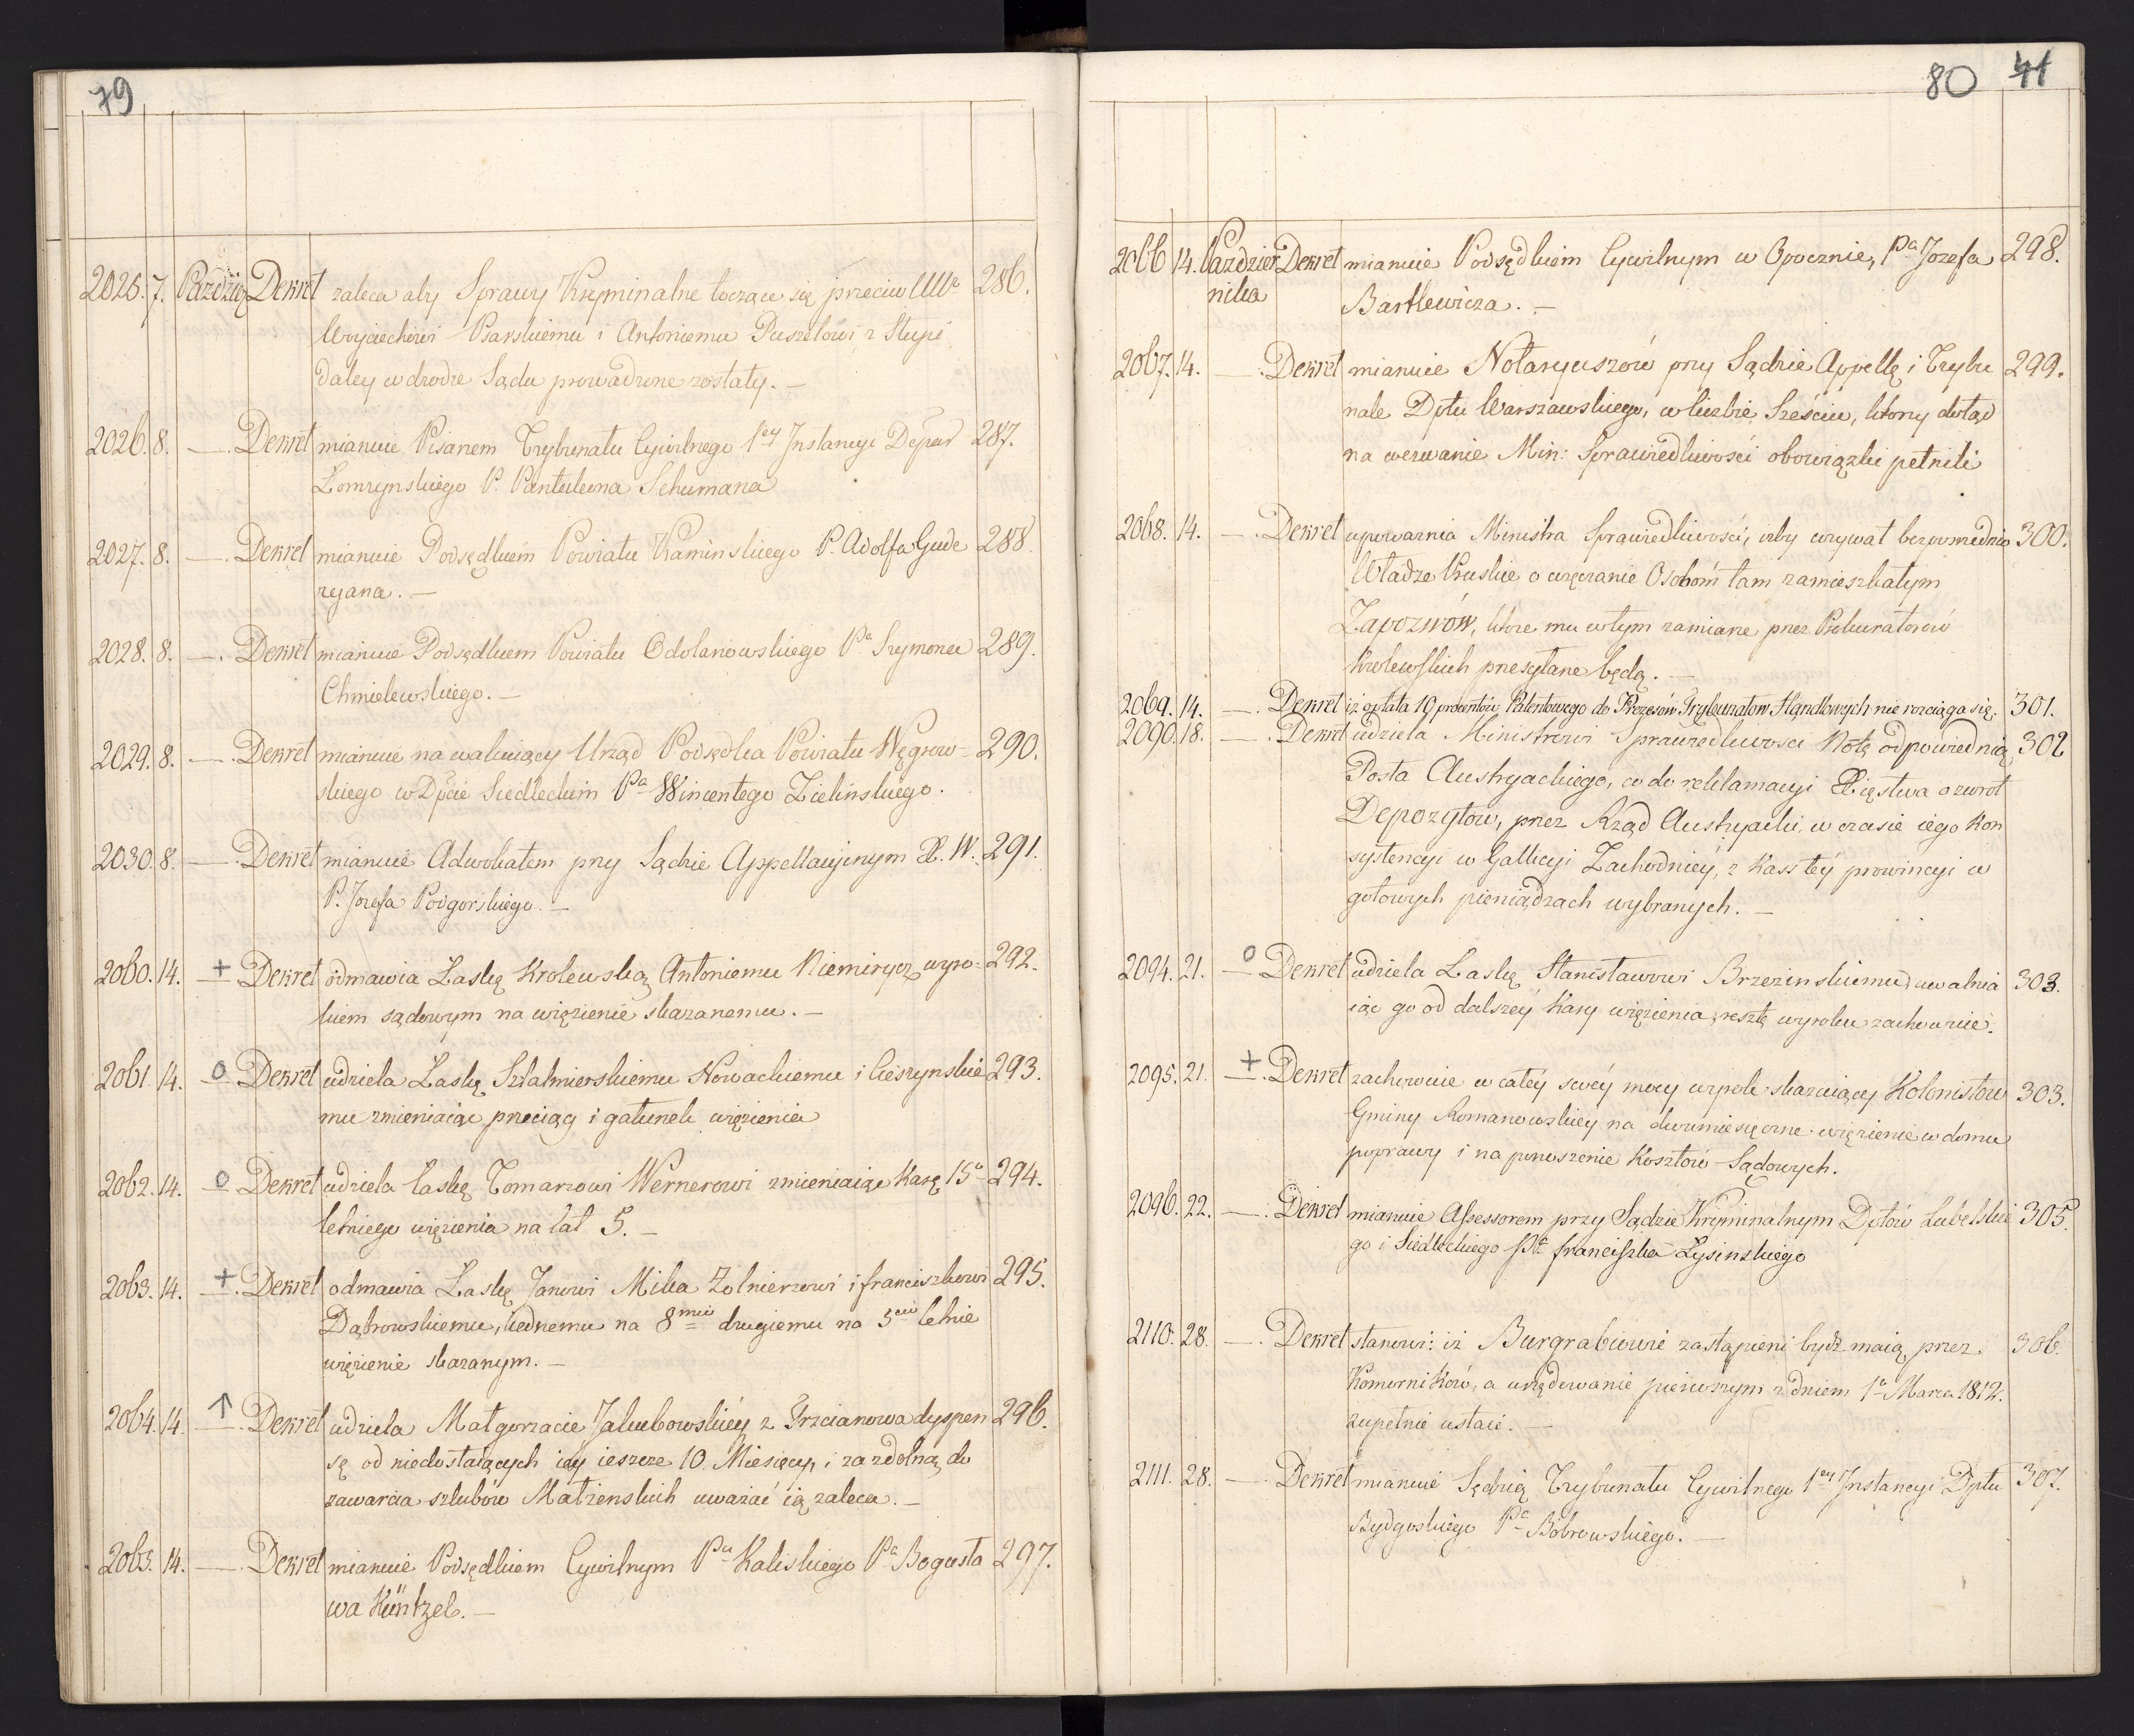 79
2025. 7. Paździe Dekret zaleca aby Sprawy Kryminalne toczące się przeciw UUr 286.
Woyciechowi Psarskiemu i Antoniemu Puszetowi z Słupi
daley w drodze Sądu prowadzone zostały. —
2026. 8. —. Dekret mianuie Pisarzem Trybunału Cywilnego 1ey Instancyi Depar 287.
Łomzynskiego P. Pantaleona Schumana
2027. 8. —. Dekret mianuie Podsędkiem Powiatu Kaminskiego P. Adolfa Gude 288.
ryana. —
2028. 8. —. Dekret mianuie Podsędkiem Powiatu Odolanowskiego Pa Szymona 289.
Chmielewskiego. —
2029. 8. —. Dekret mianuie na wakuiący Urząd Podsędka Powiatu Węgrow= 290.
skiego w Dpcie Siedleckim Pa Wincentego Zielinskiego.
2030. 8. —. Dekret mianuie Adwokatem przy Sądzie Appellacyinym X. W. 291.
P. Jozefa Podgorskiego. —
2060. 14. + Dekret odmawia Łaskę Krolewską Antoniemu Niemirycz wyro= 292.
kiem sądowym na więzienie skazanemu. —
2061 14. o Dekret udziela Łaskę Szlalmierskiemu Nowackiemu i Cieszynskie 293.
mu zmieniaiąc przeciąg i gatunek więzienia
2062. 14. o Dekret udziela łaskę Tomaszowi Wernerowi zmieniaiąc Karę 15o 294.
letniego więzienia na lat 5. —
2063. 14. +. Dekret odmawia Łaskę Janowi Mika Żolnierzowi i franciszkowi 295.
Dąbrowskiemu, iednemu na 8mio drugiemu na 5cio letnie
więzienie skazanym. —
2064. 14. ↑ —. Dekret udziela Małgorzacie Jakubowskiéy z Trzcianowa dyspen 296.
sę od niedostaiących iéy ieszcze 10. Miesięcy, i za zdolną do
zawarcia szlubów Małzenskich uważać ią zaleca. —
2065. 14. —. Dekret mianuie Podsędkiem Cywilnym Ptu Kaliskiego Pa Bogusła 297.
wa Küntzel. —
80 41
2066 14. Paździer Dekret mianuie Podsędkiem Cywilnym w Opocznie, Pa Jozefa 298.
nika Bartkewicza. —
2067. 14. —. Dekret mianuie Notaryuszów przy Sądzie Appellę i Trybu 299.
nale Dptu Warszawskiego, w liczbie Sześciu, ktorzy dotąd
na wezwanie Min: Sprawiedliwości obowiązki pełnili
2068. 14. —. Dekret upoważnia Ministra Sprawiedliwości, izby wzywał bezposrednio 300.
Władze Pruskie o wręczanie Osobom tam zamieszkałym
Zapozwów, ktore mu w tym zamiarze przez Prokuratorów
Krolewskich przesyłane będą. —
2069. 14. —. Dekret iż opłata 10 procentów Patentowego do Prezesów Trybunałow Handlowych nie rozciąga się. 301.
2090. 18. —. Dekret udziela Ministrowi Sprawiedliwosci Notę odpowiednią 302
Posła Austryackiego, co do reklamacyi Xięstwa o zwrot
Depozytow, przez Rząd Austryacki, w czasie iego Kon
systencyi w Gallicyi Zachodniéy, z Kass téy prowincyi w
gotowych pieniądzach wybranych. —
2094. 21. o Dekret udziela Łaskę Stanisławowi Brzezinskiemu, uwalnia 303.
iąc go od dalszéy kary więzienia, resztę wyroku zachowuie.
2095. 21. + Dekret zachowuie w całéy swéy mocy wyrok skazuiący Kolonistów 303.
Gminy Romanowskiey na dwumiesięczne więzienie w domu
poprawy i na ponoszenie Kosztów Sądowych.
2096. 22. —. Dekret mianuie Assessorem przy Sądzie Kryminalnym Dptów Lubelskie 305.
go i Siedleckiego Pa franciszka Łysinskiego
2110. 28. —. Dekret stanowi: iż Burgrabiowie zastąpieni bydź maią przez 306.
Komornikow, a urzędowanie pierwszym z dniem 1o Marca 1812.
zupełnie ustaie. —
2111. 28. —. Dekret mianuie Sędzią Trybunału Cywilnego 1ey Instancyi Dptu 307.
Bydgoskiego Pa Bobrowskiego. —